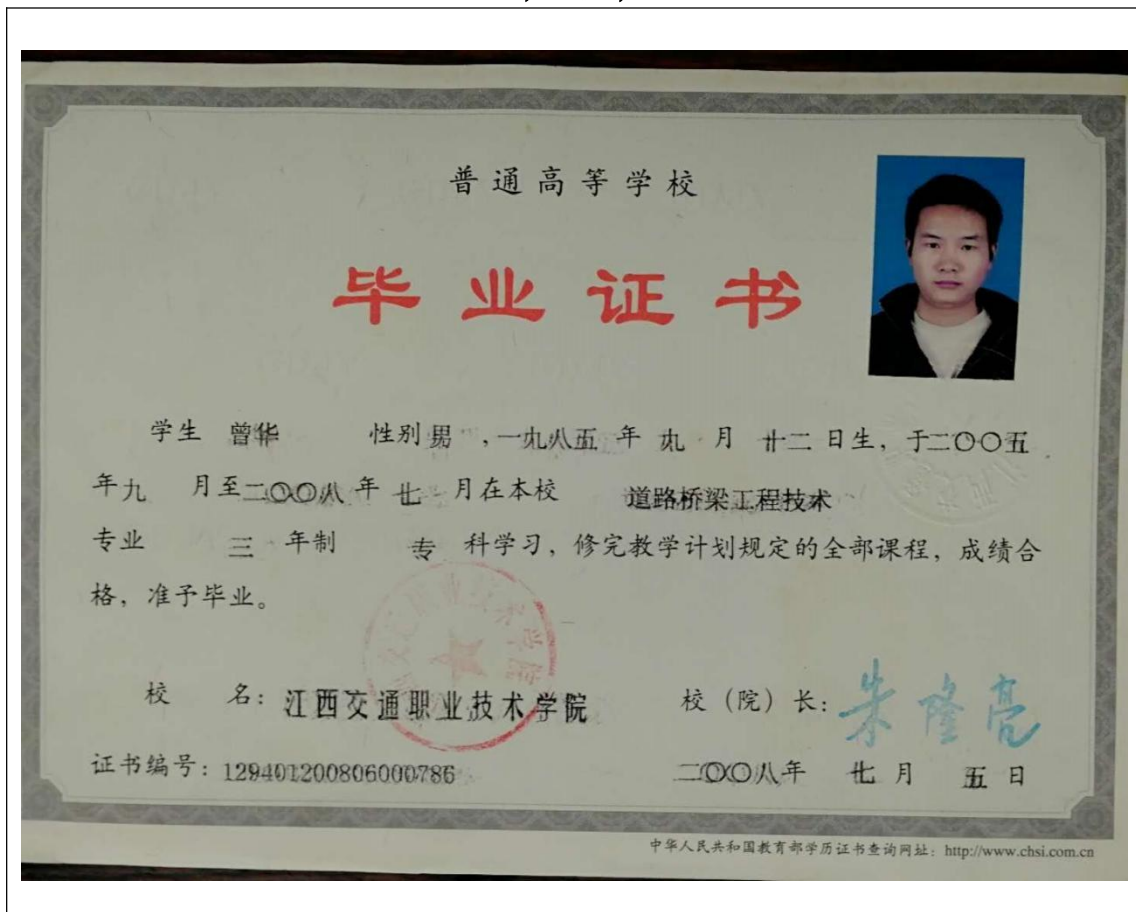 普通高等学校
毕业证书
学生 曾华 性别 男 ,一九八五 年 九 月 廿二 日生, 于二〇〇五
年九 月至二〇〇八 年 七 月在本校 道路桥梁工程技术
专业 三 年制 专 科学习, 修完教学计划规定的全部课程, 成绩合
格, 准予毕业。
校 名: 江西交通职业技术学院 校 (院) 长: 朱隆亮
证书编号: 129401200806000786 二〇〇八年 七 月 五 日
中华人民共和国教育部学历证书查询网址: http://www.chsi.com.cn